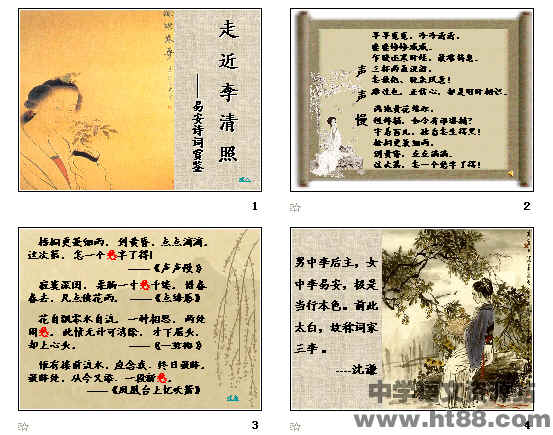 走近李清照
——易安诗词赏鉴
1
声声慢
寻寻觅觅，冷冷清清，
凄凄惨惨戚戚。
乍暖还寒时候，最难将息。
三杯两盏淡酒，
怎敌他、晚来风急！
雁过也，正伤心，却是旧时相识。
满地黄花堆积，
憔悴损，如今有谁堪摘？
守着窗儿，独自怎生得黑！
梧桐更兼细雨，
到黄昏、点点滴滴。
这次第，怎一个愁字了得！
2
梧桐更兼细雨，到黄昏，点点滴滴，
这次第，怎一个愁字了得！
——《声声慢》
寂寞深闺，柔肠一寸愁千缕。惜春
春去，几点催花雨。——《点绛唇》
花自飘零水自流。一种相思，两处
闲愁。此情无计可消除，才下眉头，
却上心头。——《一剪梅》
惟有楼前流水，应念我、终日凝眸。
凝眸处，从今又添，一段新愁。
——《凤凰台上忆吹箫》
3
男中李后主，女
中李易安，极是
当行本色。前此
太白，故称词家
三李。
----沈谦
4
www.ht88.com